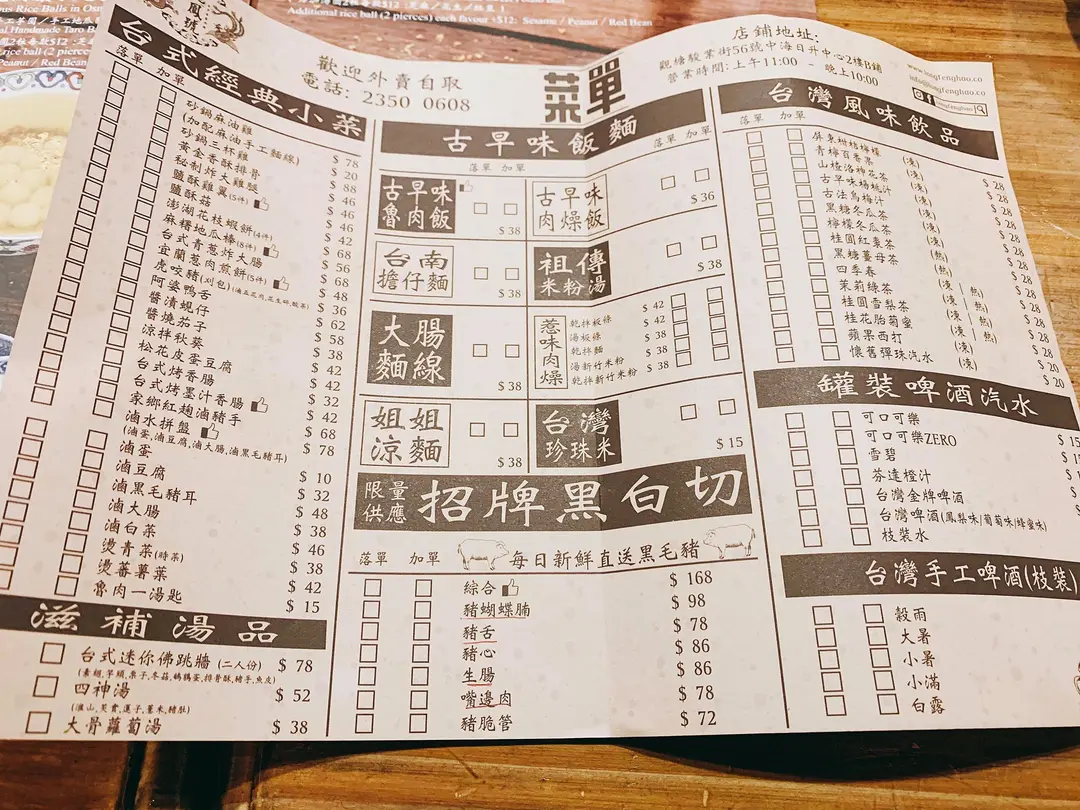 Additional rice ball (2 pierces) each favour +$12: Sesame / Peanut / Red Bean
菜單
歡迎外賣自取
電話: 2350 0608
店鋪地址:
觀塘駿業街56號中海日升中心2樓B鋪
營業時間: 上午11:00 - 晚上10:00
台式經典小菜
落單 加單
砂鍋麻油雞
(加配麻油手工麵線)
砂鍋三杯雞
黃金香酥排骨
秘制炸大雞腿
鹽酥雞翼(5件)
鹽酥菇
澎湖花枝蝦餅(4件)
麻糬地瓜棒(8件)
台式青蔥炸大腸
宜蘭蔥肉煎餅(5件)
虎咬豬(刈包)(滷五花肉,花生碎,酸菜)
阿婆鴨舌
醬漬蜆仔
醬燒茄子
涼拌秋葵
松花皮蛋豆腐
台式烤香腸
台式烤墨汁香腸
家鄉紅麴滷豬手
滷水拼盤
(滷蛋,滷豆腐,滷大腸,滷黑毛豬耳)
滷蛋
滷豆腐
滷黑毛豬耳
滷大腸
滷白菜
燙青菜(時菜)
燙蕃薯葉
魯肉一湯匙
$ 78
$ 20
$ 88
$ 46
$ 46
$ 42
$ 68
$ 56
$ 68
$ 48
$ 36
$ 62
$ 58
$ 38
$ 42
$ 42
$ 32
$ 42
$ 68
$ 78
$ 10
$ 32
$ 48
$ 38
$ 46
$ 38
$ 42
$ 15
滋補湯品
台式迷你佛跳牆 (二人份) $ 78
四神湯 $ 52
(淮山,芡實,蓮子,薏米,豬肚)
大骨蘿蔔湯 $ 38
古早味飯麵
落單 加單 落單 加單
古早味魯肉飯 $ 38
古早味肉燥飯 $ 36
台南擔仔麵 $ 38
祖傳米粉湯 $ 38
大腸麵線 $ 38
惹味肉燥
乾拌板條 $ 42
湯板條 $ 42
乾拌麵 $ 38
湯新竹米粉 $ 38
乾拌新竹米粉 $ 38
姐姐涼麵 $ 38
台灣珍珠米 $ 15
限量供應 招牌黑白切
落單 加單 每日新鮮直送黑毛豬
綜合 $ 168
豬蝴蝶腩 $ 98
豬舌 $ 78
豬心 $ 86
生腸 $ 86
嘴邊肉 $ 78
豬脆管 $ 72
台灣風味飲品
落單 加單
屏東柑桔檸檬 (凍)
青檸百香果 (凍)
山楂洛神花茶 (凍)
古早味楊桃汁 (凍)
古法烏梅汁 (凍)
黑糖冬瓜茶 (凍)
檸檬冬瓜茶 (凍)
桂圓紅棗茶 (熱)
黑糖薑母茶 (熱)
四季春 (凍 | 熱)
茉莉綠茶 (凍 | 熱)
桂圓雪梨茶 (凍 | 熱)
桂花胎菊蜜
蘋果西打 (凍)
懷舊彈珠汽水 (凍)
$ 28
$ 28
$ 28
$ 28
$ 28
$ 28
$ 28
$ 28
$ 28
$ 28
$ 28
$ 28
$ 28
$ 20
$ 20
罐裝啤酒汽水
可口可樂
可口可樂ZERO
雪碧
芬達橙汁
台灣金牌啤酒
台灣啤酒(鳳梨味/葡萄味/蜂蜜味)
枝裝水
台灣手工啤酒(枝裝)
穀雨
大暑
小暑
小滿
白露